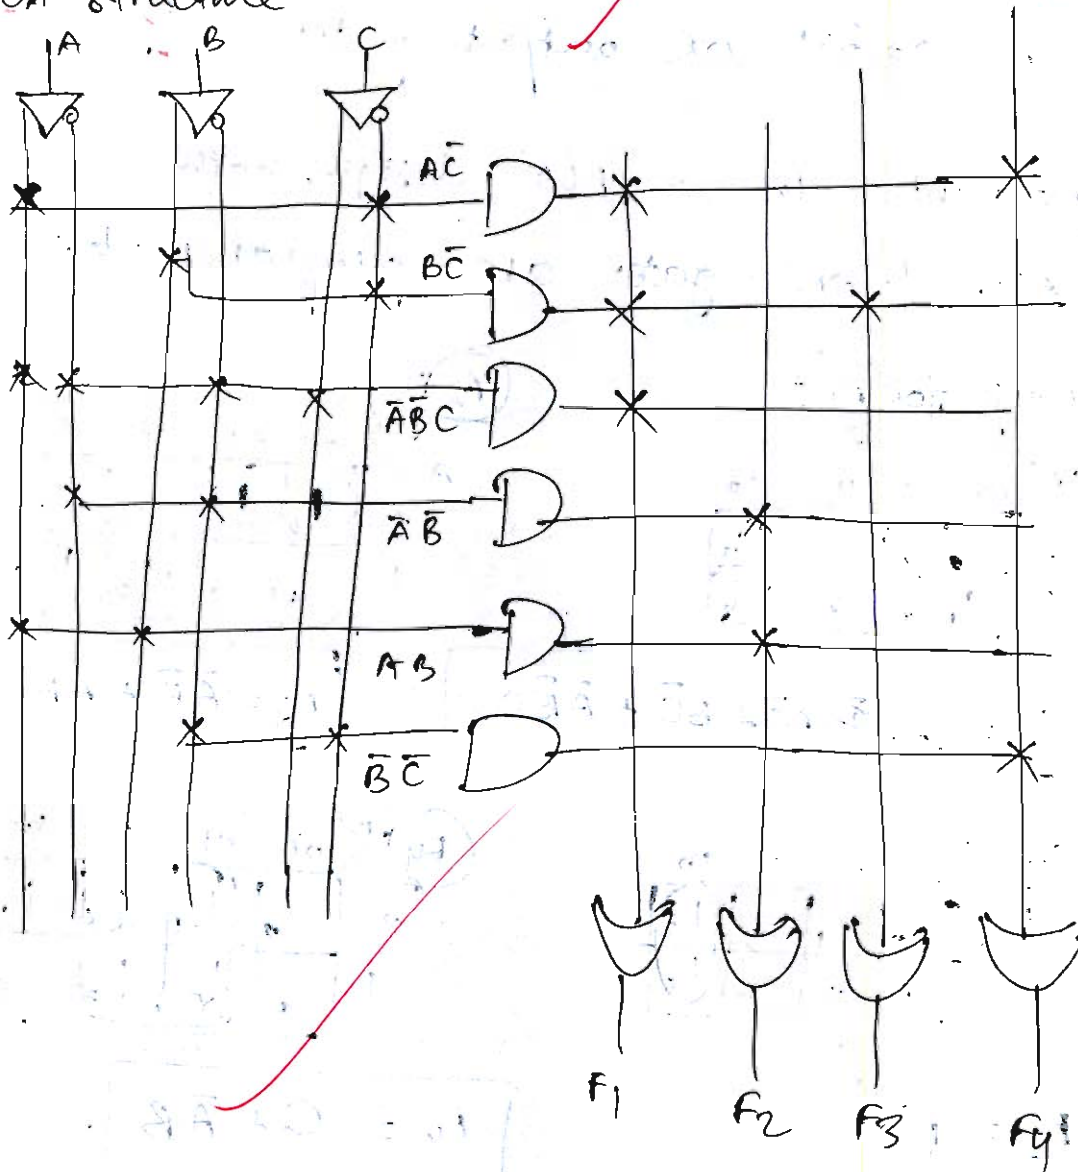 structure
A B C
AC̅
BC̅
A̅B̅C
A̅ B̅
AB
B̅ C̅
F1 F2 F3 F4